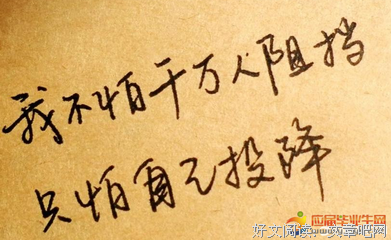 我不怕千万人阻挡
只怕自己投降
应届毕业生网